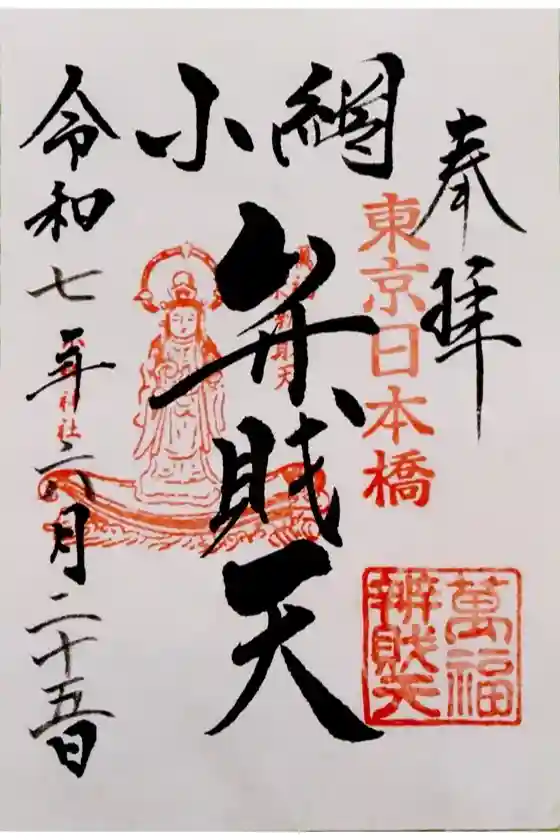 奉拝
東京日本橋
小網
弁財天
萬福
辨財天
神社
令和七年六月二十五日